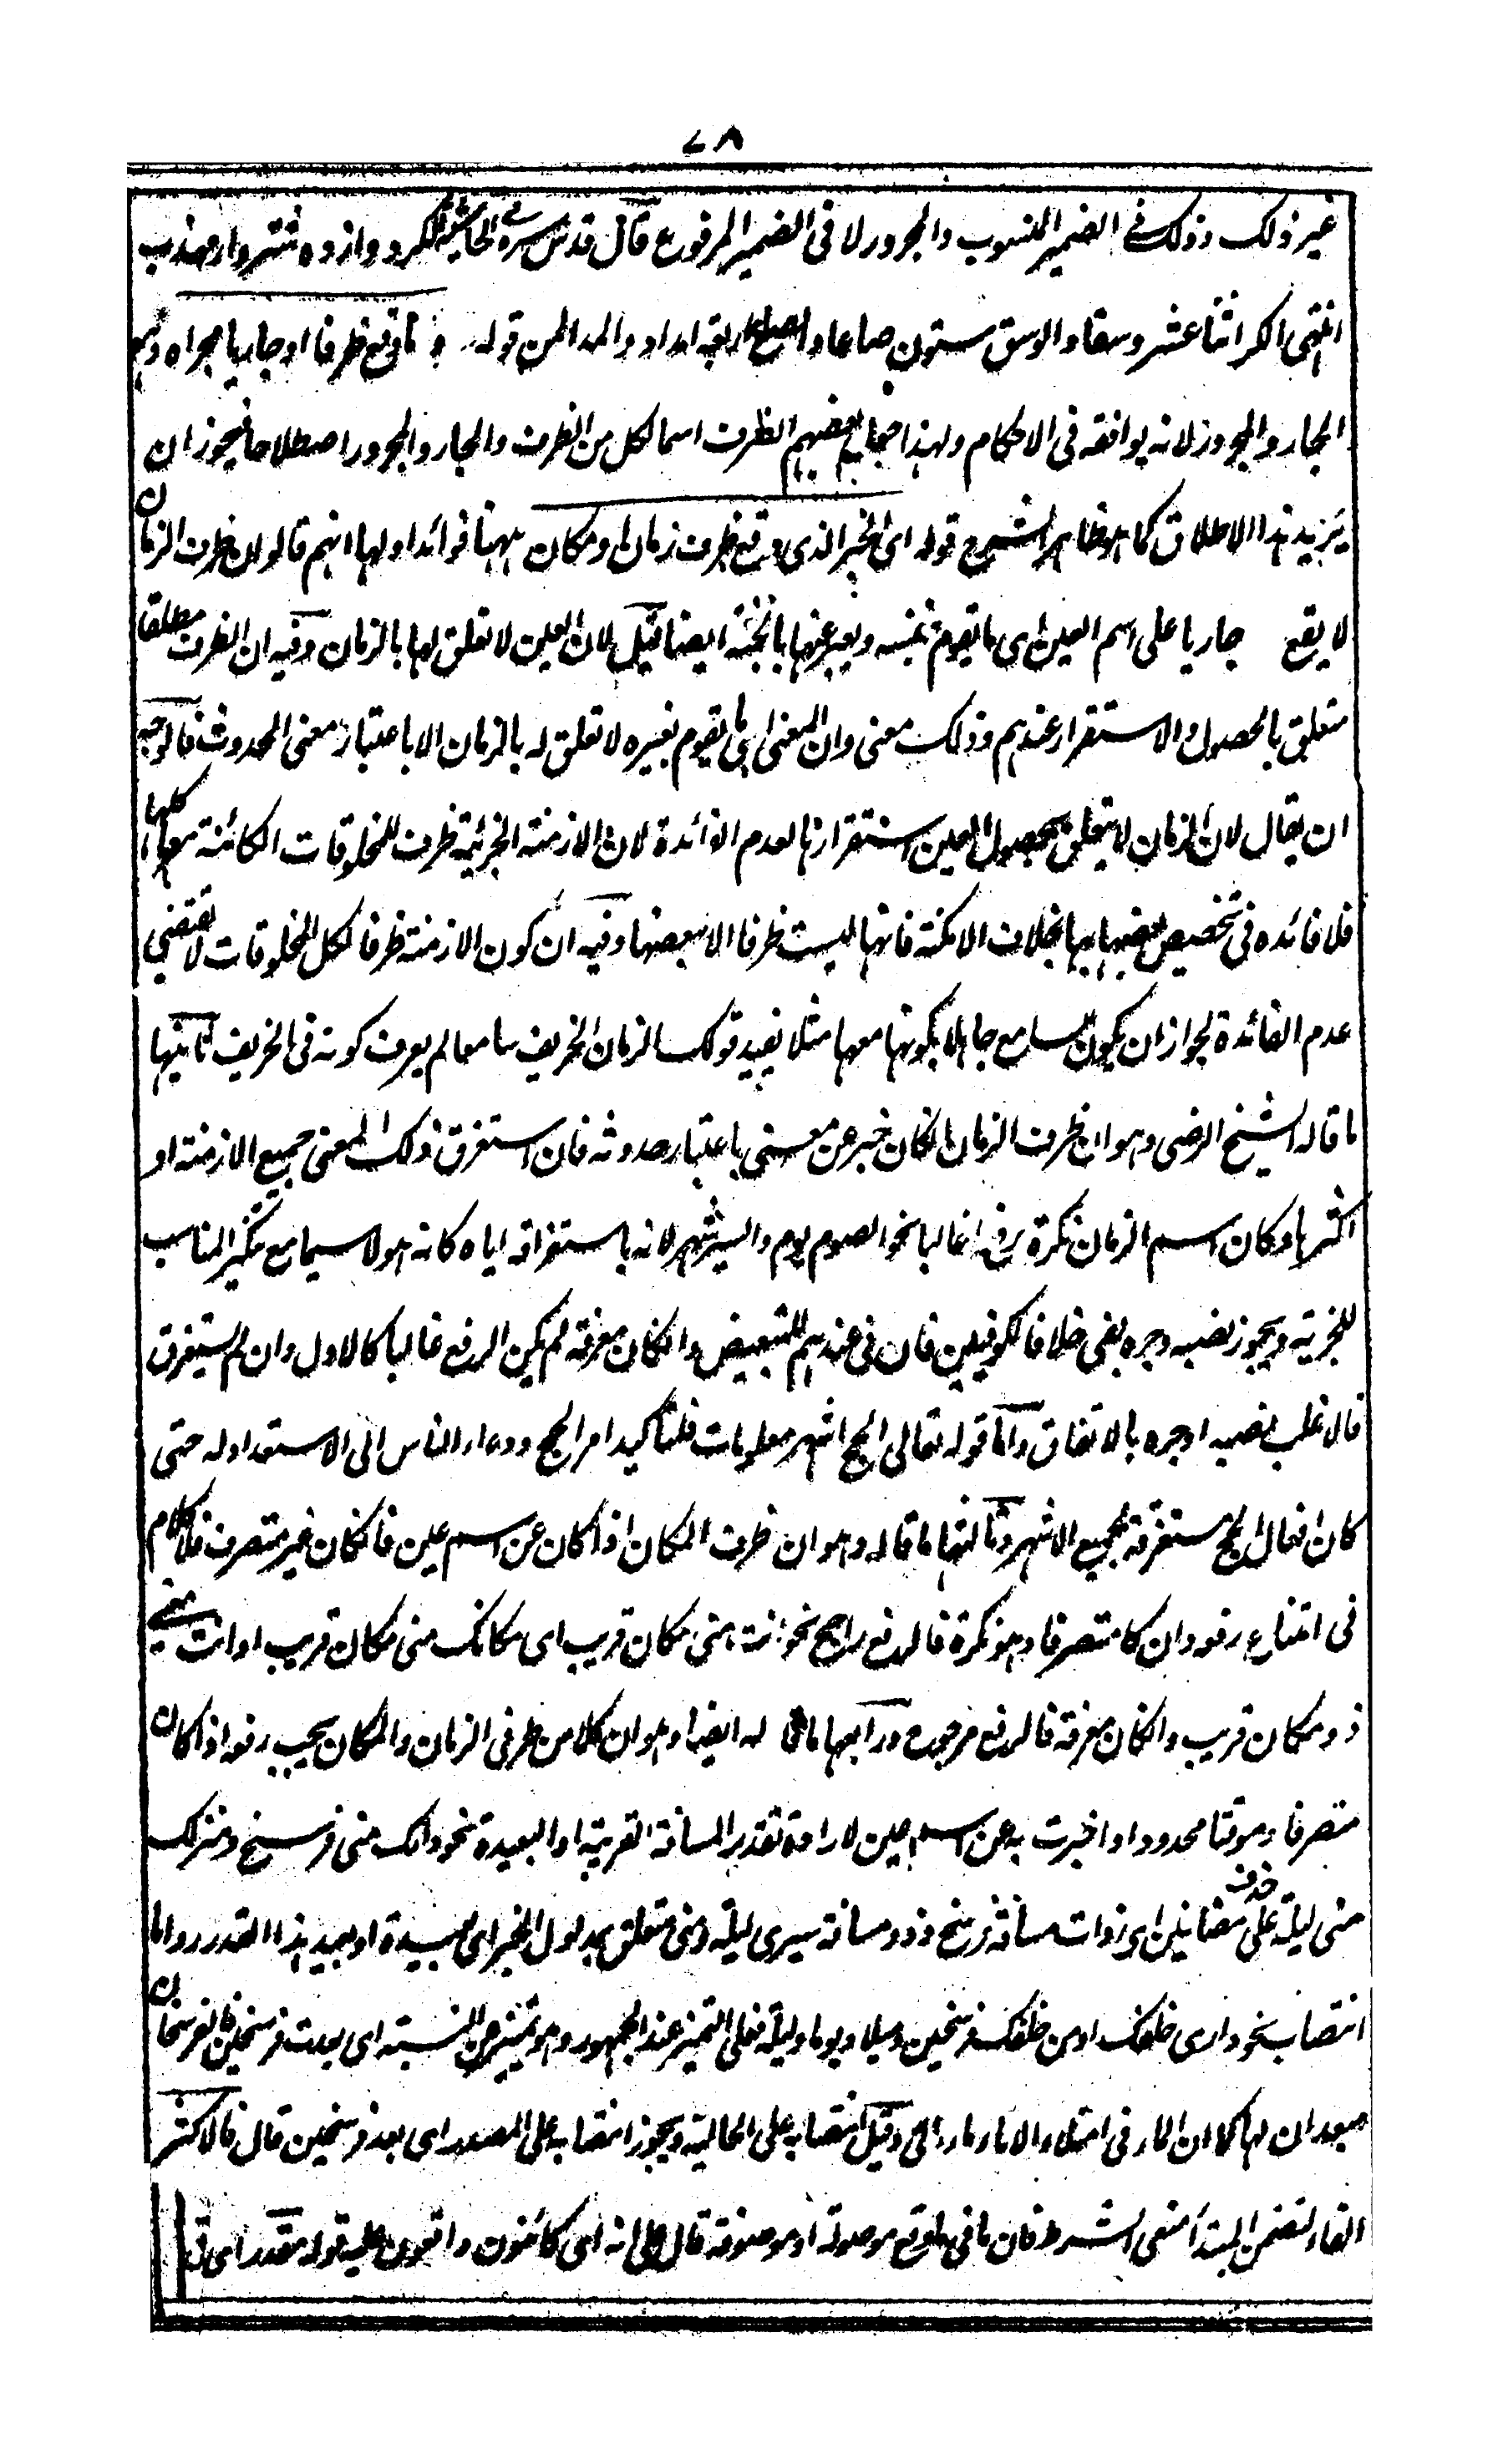 ٧٨
غير ذلك وذلك في الضمير المنسوب والمجرور لا في الضمير المرفوع قال قدس سره في الحاشية الكر دوازده شتروار مهذب
انتهى الكر اثنا عشر وسقا والوسق ستون صاعا والصاع اربعة امداد والمد المن قوله وما وقع ظرفا او جاريا مجراه وهو
الجار والمجرور لانه يوافقه في الاحكام ولهذا جعل بعضهم الظرف اسما لكل من الظرف والجار والمجرور اصطلاحا فيجوز ان
يريد هذا الاطلاق كما هو ظاهر الشرح قوله اى الخبر الذى وقع ظرف زمان او مكان ههنا فوائد اولها انهم قالوا ان ظرف الزمان
لا يقع جاريا على اسم العين اى ما يقوم بنفسه ويعبر عنها بالجثة ايضا قيل لان العين لا تعلق لها بالزمان وفيه ان الظرف مطلقا
متعلق بالحصول والاستقرار عندهم وذلك معنى وان المعنى اى ما يقوم بغيره لا تعلق له بالزمان الا باعتبار معنى الحدوث فالوجه
ان يقال لان الزمان لا يتعلق بحصول العين استقرارها لعدم الفائدة لان الازمنة الجزئية ظرف للمخلوقات الكائنة معها كلها
فلا فائده في تخصيص بعضها بها بخلاف الامكنة فانها ليست ظرفا الا لبعضها وفيه ان كون الازمنة ظرفا لكل المخلوقات لا تقتضي
عدم الفائدة لجواز ان يكون السامع جاهلا بكونها معها مثلا يفيد قولك الزمان الخريف سامعا لم يعرف كونه في الخريف ثانيها
ما قاله الشيخ الرضى وهو ان ظرف الزمان ان كان خبر عن معنى باعتبار حدوثه فان استغرق ذلك المعنى جميع الازمنة او
اكثرها وكان اسم الزمان نكرة رفع غالبا نحو الصوم يوم والسير شهر لانه باستغراقه اياه كانه هو لا سيما مع تنكير المناسب
للخبرية ويجوز نصبه وجره بفى خلافا للكوفيين فان فى عندهم للتبعيض وان كان معرفة لم يكن الرفع غالبا كالاول وان لم يستغرق
فالاغلب نصبه او جره بالاتفاق واما قوله تعالى الحج اشهر معلومات فلتأكيد امر الحج ودعاء الناس الى الاستعداد له حتى
كان افعال الحج مستغرقة لجميع الاشهر وثالثها ما قاله وهو ان ظرف المكان اذا كان عن اسم عين فان كان غير متصرف فلا كلام
فى امتناع رفعه وان كا متصرفا وهو نكرة فالرفع راجح نحو انت منى مكان قريب اى مكانك منى مكان قريب او انت منى
ذو مكان قريب وان كان معرفة فالرفع مرجوح ورابعها ما قاله ايضا وهو ان كلا من ظرفى الزمان والمكان يجب رفعه اذا كان
متصرفا وموقتا محدودا واخبرت به عن اسم عين لارادة تقدير المسافة القريبة او البعيدة نحو دارك منى فرسخ ومنزلك
منى ليلة على حذف مضافين اى ذوات مسافة فرسخ وذو مسافة سيرى ليلة ومنى متعلق بمدلول الخبر اى بعيدة او بعيد هذا القدر واما
انتصاب نحو دارى خلفك او من خلفك فرسخين وميلا ويوما وليلة فعلى التميز عند الجمهور وهو تميز عن النسبة اى بعدت فرسخين فان الفرسخان
مبعدان لها كما ان الماء فى امتلاء الاناء ماء مالئ وقيل انتصابه على الحالية ويجوز انتصابه على المصدر اى بعد فرسخين قال فالاكثر
الفاء لتضمن المبتدأ معنى الشرط فان ما فى ما وقع موصولة او موصوفة قال على انه اى كائنون واقعون عليه قوله مقدر اى